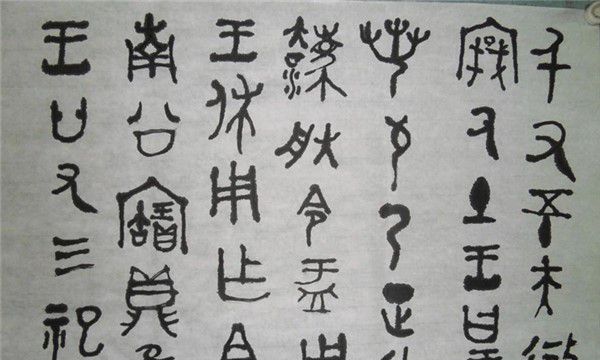 千又五十夫
土王曰
若敬乃正
灋朕令盂用
王休用乍且
南公寶鼎隹
王廿又三祀